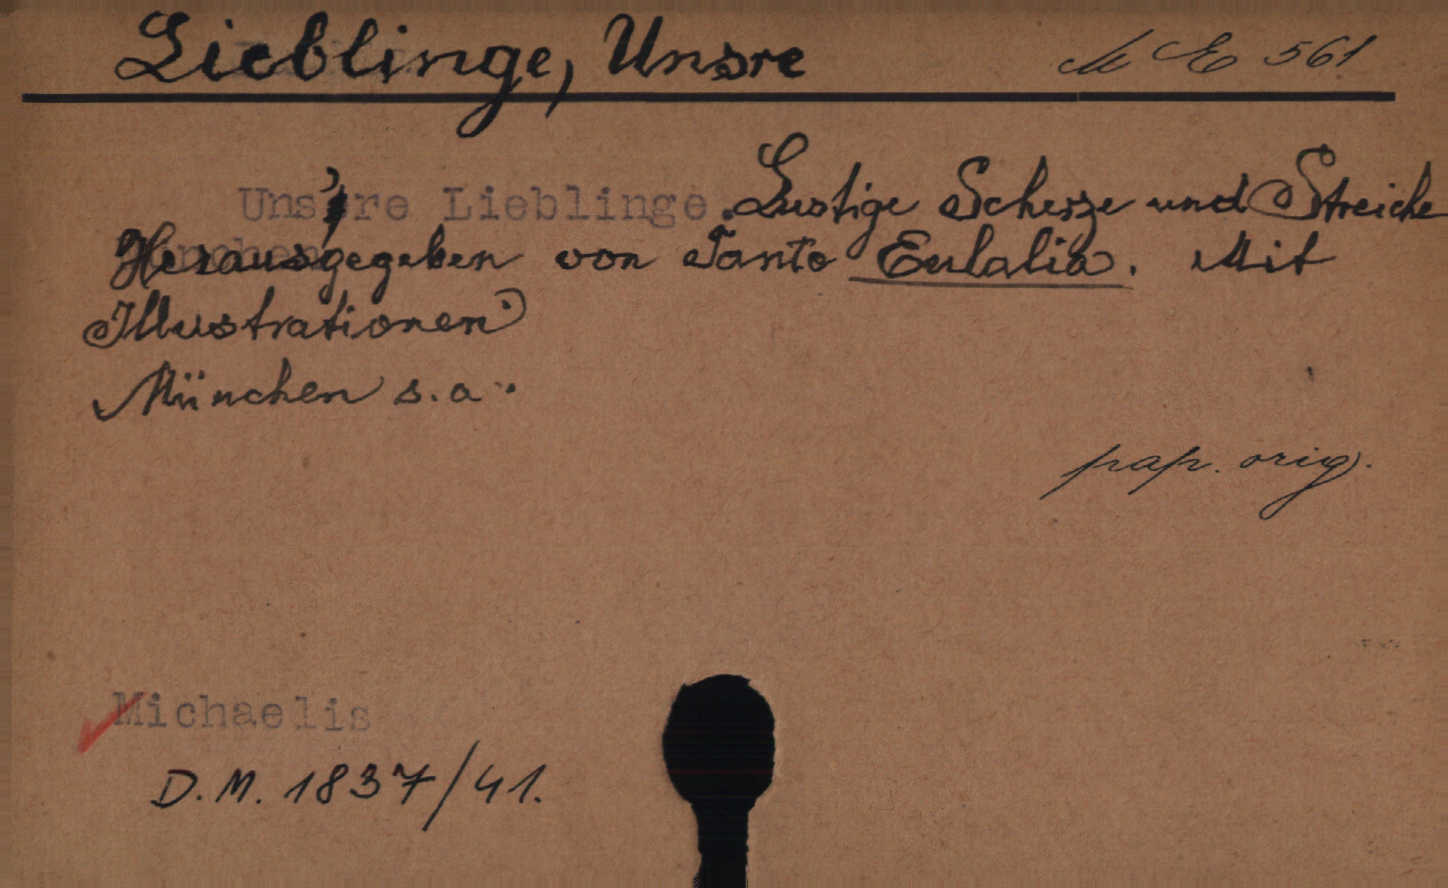 Lieblinge, Unsre
M E 561
Uns're Lieblinge. Lustige Scherze und Streiche
Herausgegeben von Tante Eulalia. Mit
Illustrationen
München s.a.
pap. orig.
Michaelis
D.M. 1837/41.